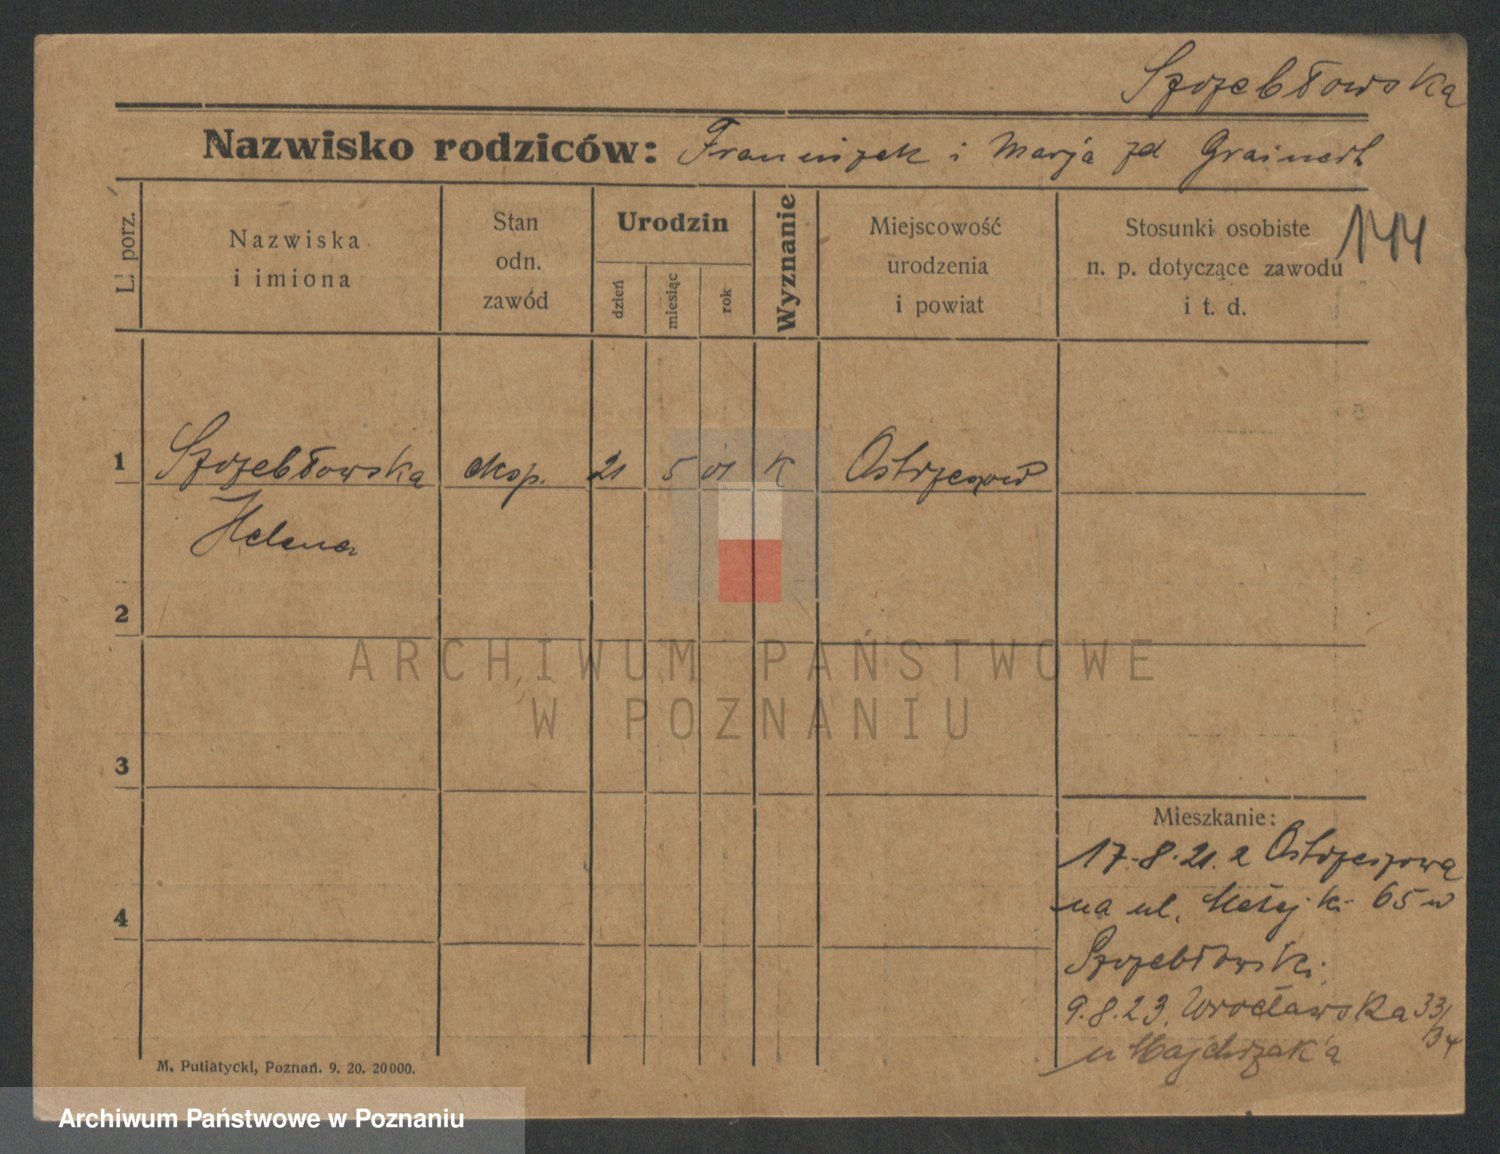 Szczebłowska
Nazwisko rodziców: Franciszek i Marja zd Grainert
144
L. porz.
Nazwiska i imiona
Stan odn. zawód
Urodzin
dzień
miesiąc
rok
Wyznanie
Miejscowość urodzenia i powiat
Stosunki osobiste n. p. dotyczące zawodu i t. d.
1 Szczebłowska eksp. 21 5 01 K Ostrzeszów
Helena
2
3
4
Mieszkanie:
17.8.21. z Ostrzeszowa
na ul. 65 u
Szczebłowski
9.8.23. Wrocławska 33/34
u Majchrzaka
M. Putiatycki, Poznań. 9. 20. 20000.
ARCHIWUM PAŃSTWOWE
W POZNANIU
Archiwum Państwowe w Poznaniu